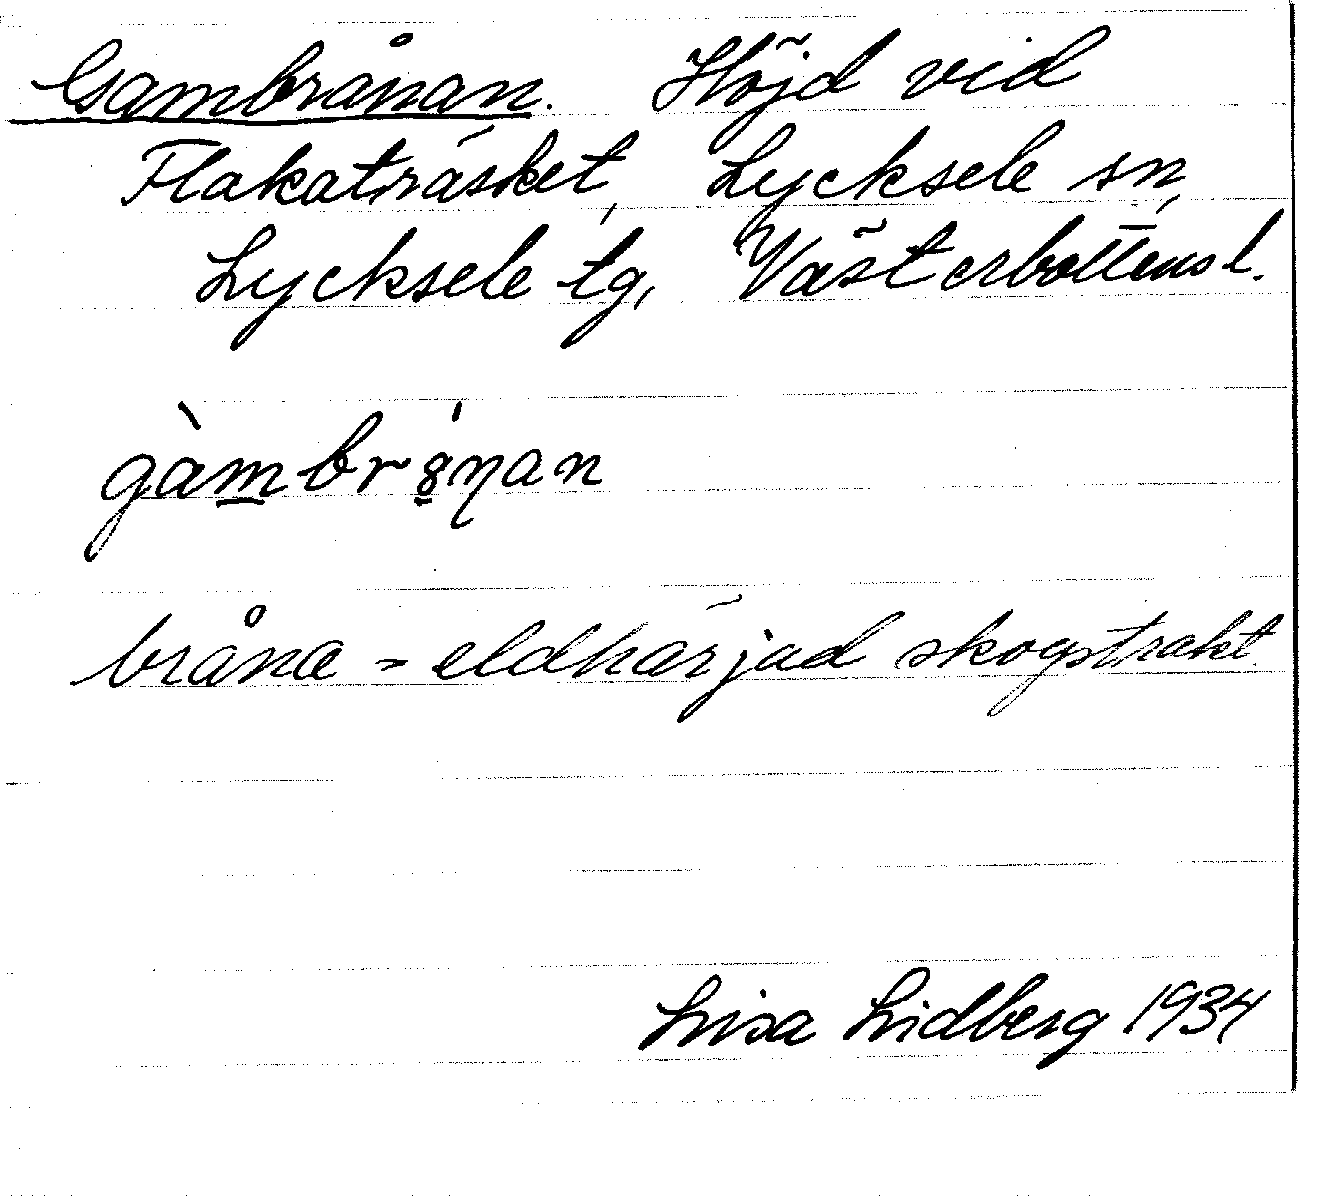 Gambrånan. Höjd vid
Flakaträsket, Lycksele sn,
Lycksele tg, Västerbottens l.
gàm̲br8̲́ŋan
bråna = eldhärjad skogstrakt
Lisa Lidberg 1934